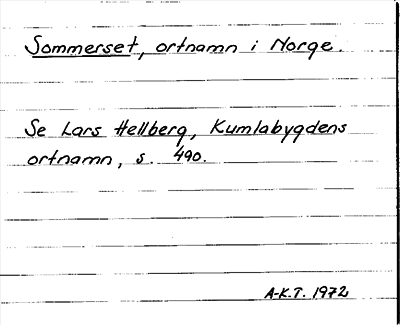 Sommerset, ortnamn i Norge.
Se Lars Hellberg, Kumlabygdens
ortnamn, s. 490.
A-K.T. 1972